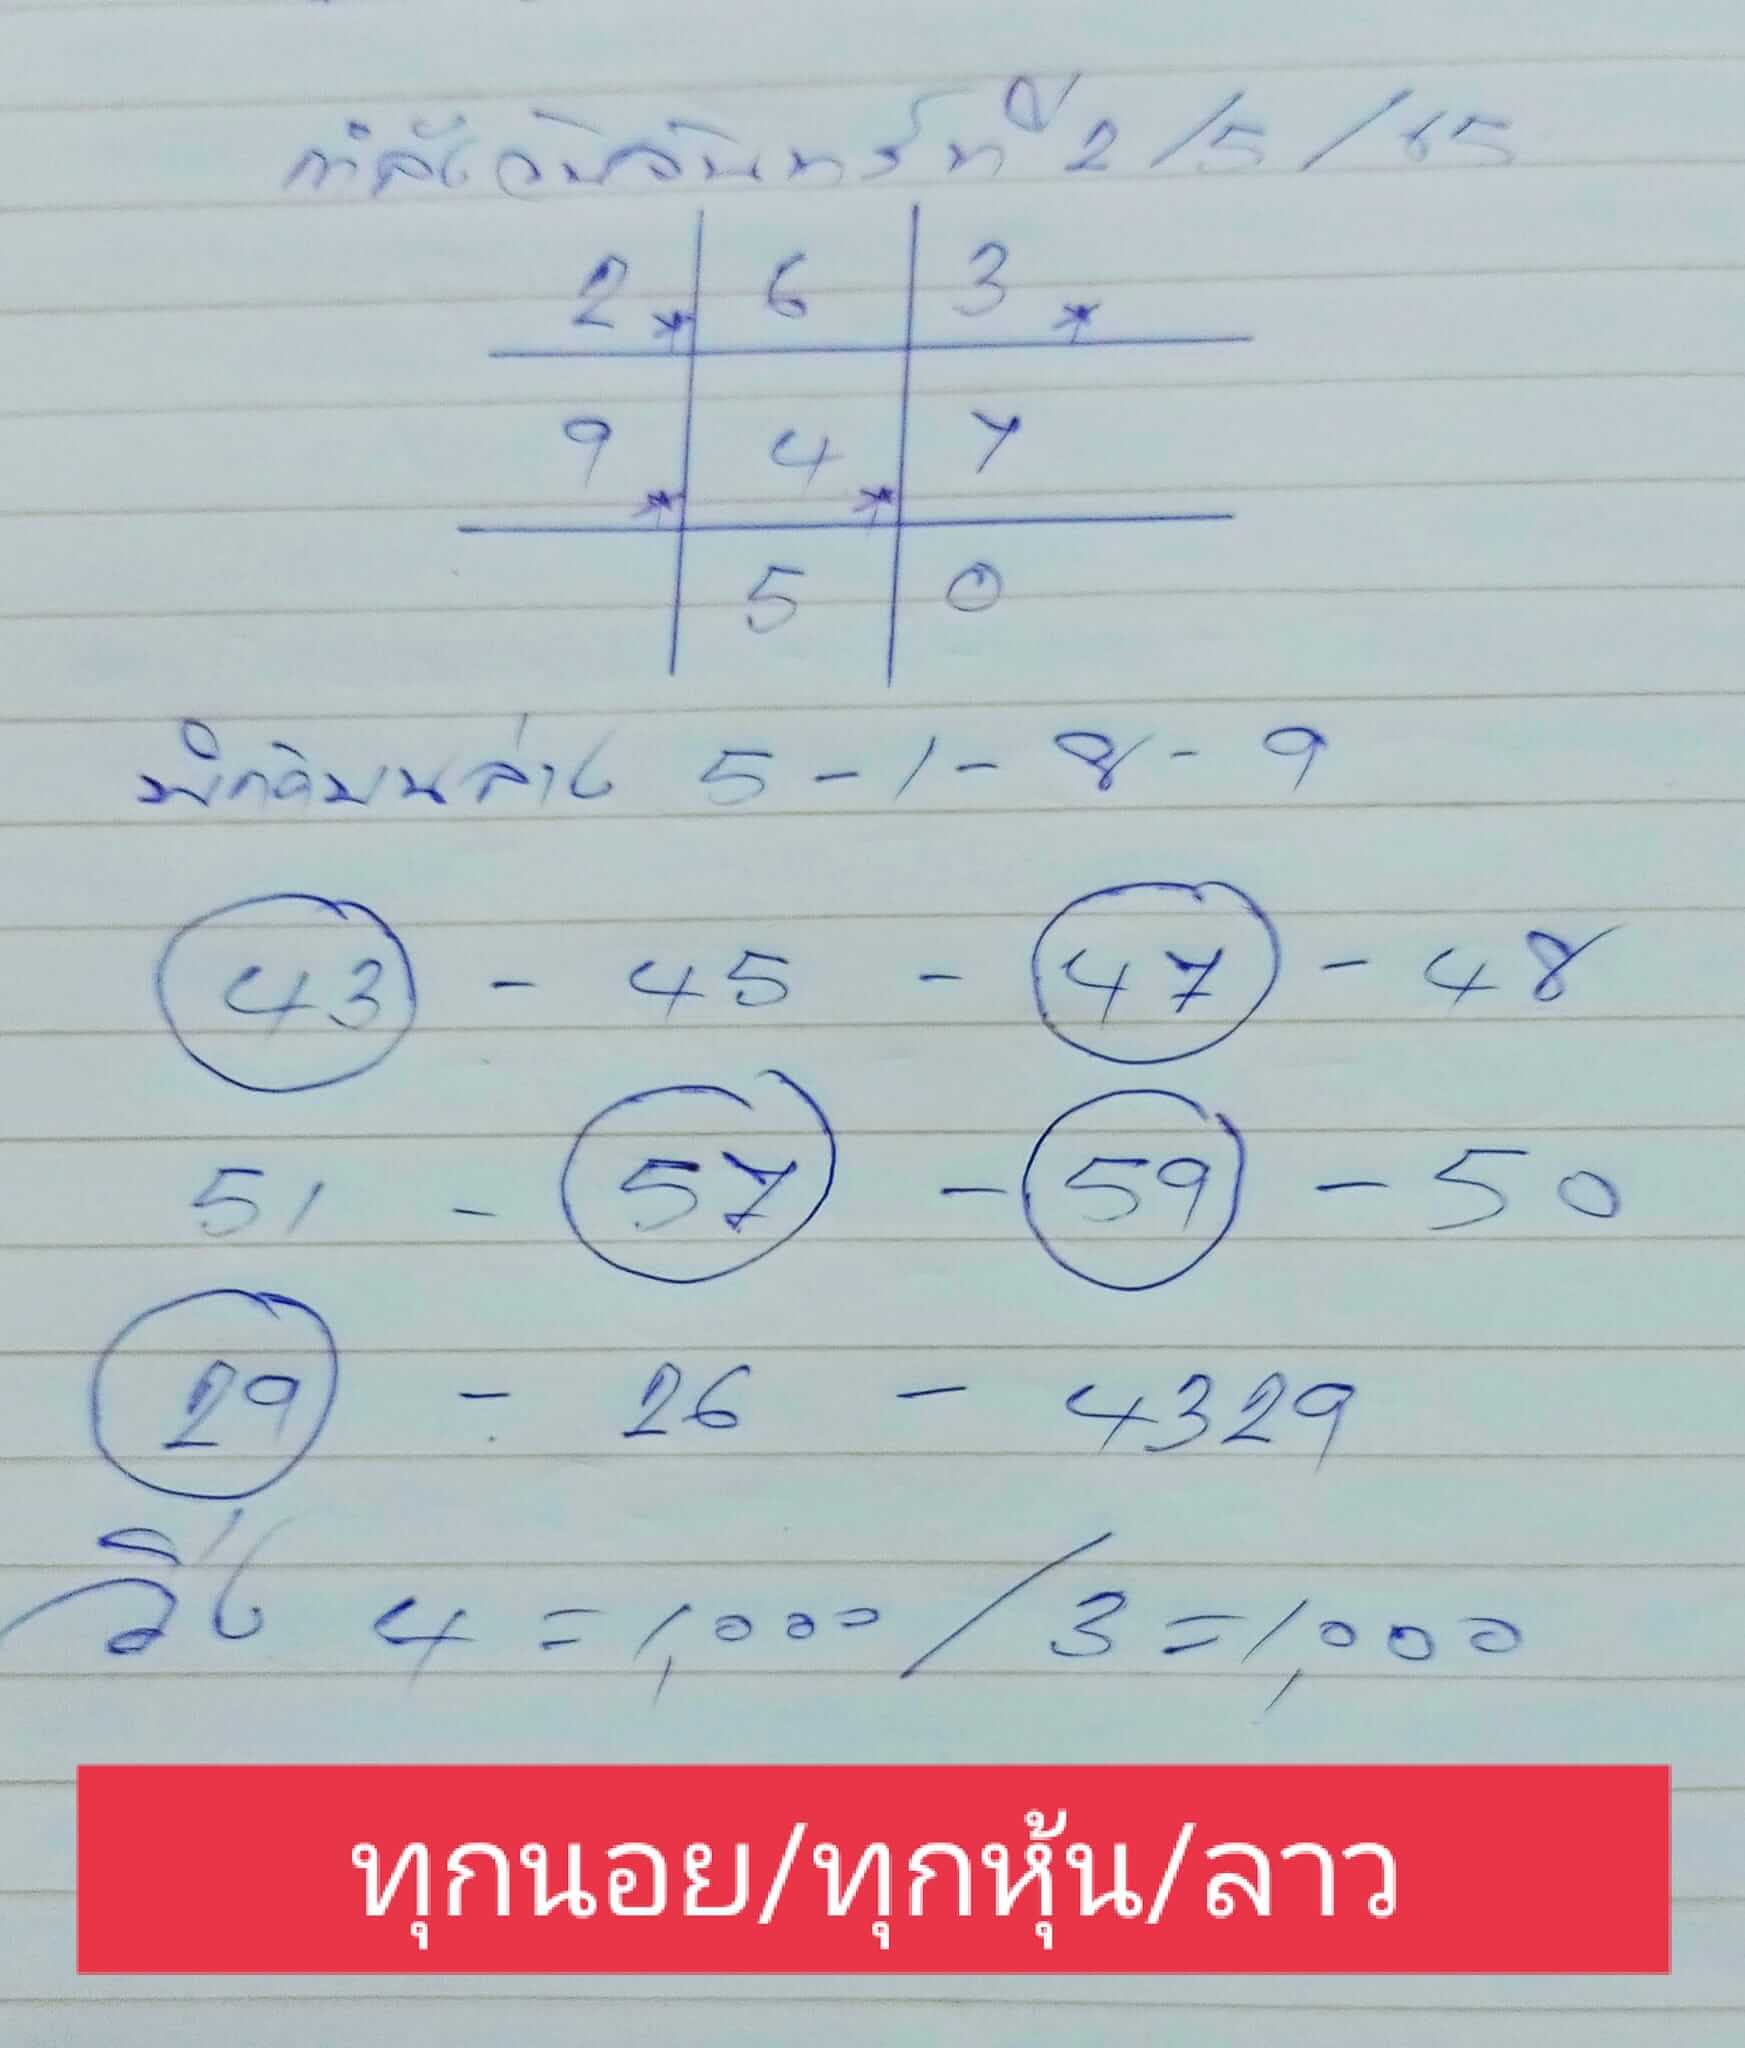 กำลังวันจันทร์ที่ 2/5/65
2 6 3
9 4 7
5 0
พิกัดบนล่าง 5-1-8-9
43 - 45 - 47 - 48
51 - 57 - 59 - 50
29 - 26 - 4329
วิ่ง 4=1,000/3=1,000
ทุกนอย/ทุกหุ้น/ลาว